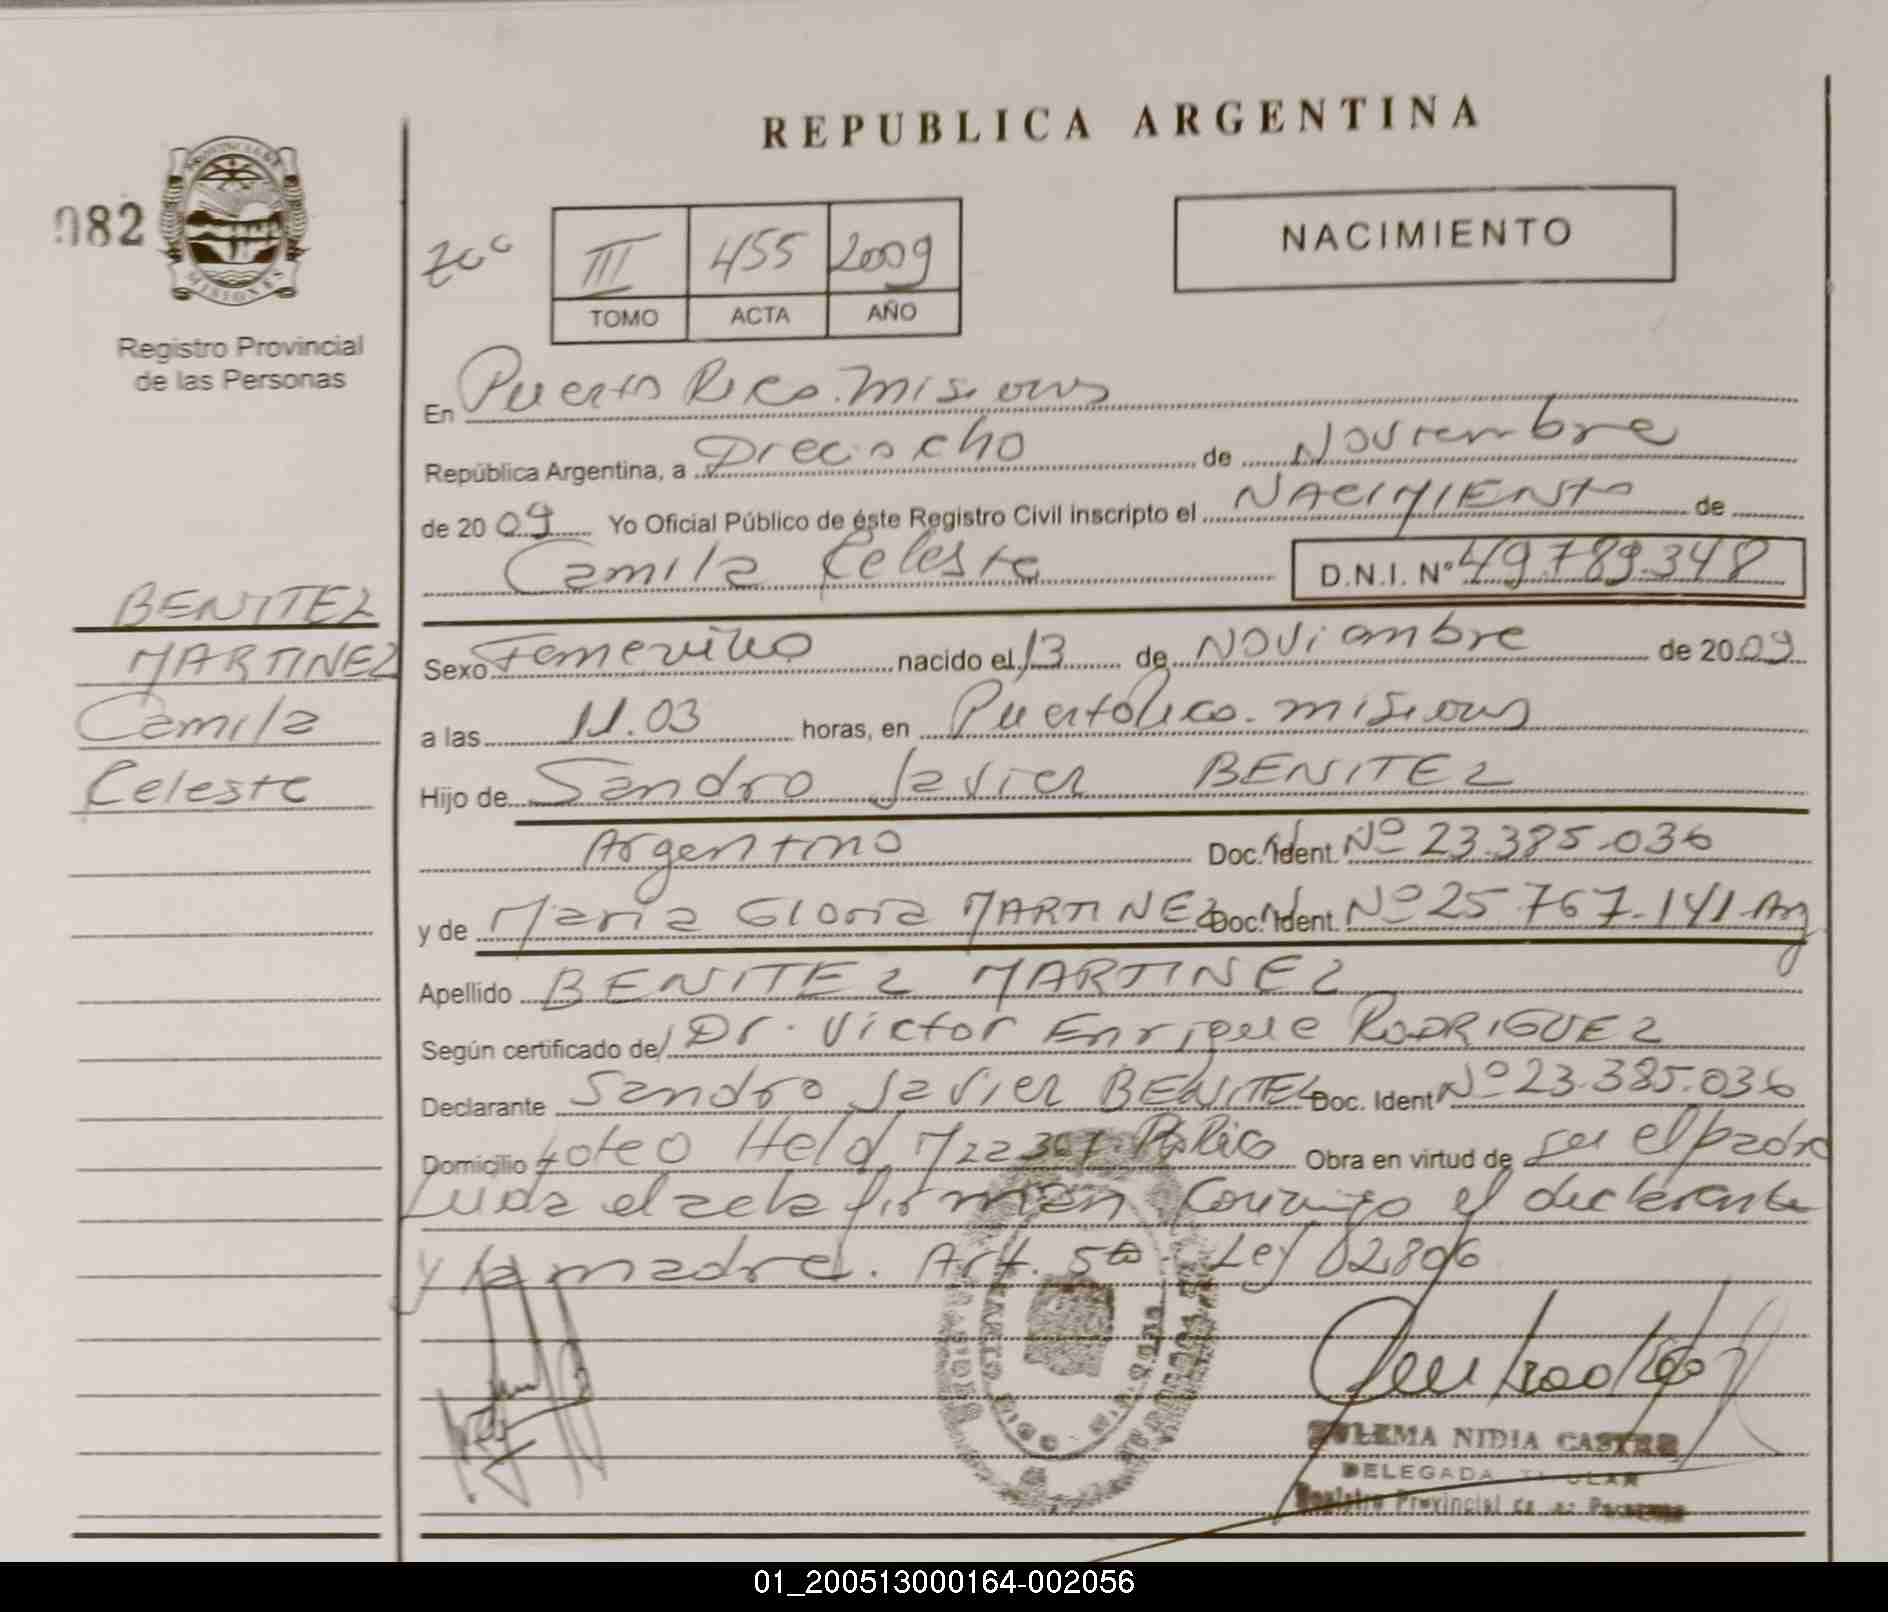 REPUBLICA ARGENTINA
082
PROVINCIA DE
MISIONES
Registro Provincial
de las Personas
III 455 2009
TOMO ACTA AÑO
NACIMIENTO
En Puerto Rico. Misiones
República Argentina, a Dieciocho de Noviembre
de 20 09 Yo Oficial Público de éste Registro Civil inscripto el NACIMIENTO de
Camila Celeste D.N.I. Nº 49.789.348
BENITEZ
MARTINEZ
Camila
Celeste
Sexo Femenino nacido el 13 de Noviembre de 20 09
a las 11.03 horas, en Puerto Rico. Misiones
Hijo de Sandro Javier BENITEZ
Argentino Doc. Ident. Nº 23.385.036
y de Maria Gloria MARTINEZ Doc. Ident. Nº 25.767.141 Arg
Apellido BENITEZ MARTINEZ
Según certificado de/ Dr. Victor Enrique RODRIGUEZ
Declarante Sandro Javier BENITEZ Doc. Ident Nº 23.385.036
Domicilio Loteo Held Pto Rico Obra en virtud de ser el padre
Leida el acta firman conmigo el declarante
y la madre. Art. 5to Ley 02806
ZULEMA NIDIA CASTRO
DELEGADA TITULAR
Registro Provincial de las Personas
01_200513000164-002056